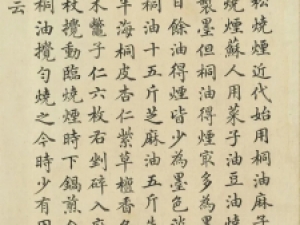 松燒煙近代始用桐油麻子
燒煙蘇人用菜子油豆油燒
製墨但桐油得煙最多為
日餘油得煙皆少為墨色淡
桐油十五斤芝麻油五斤
半海桐皮杏仁紫草檀香各
木鼈子仁六枚右剉碎入
枝攪動臨燒煙時下鍋煎
桐油攪勻燒之今時少有
云